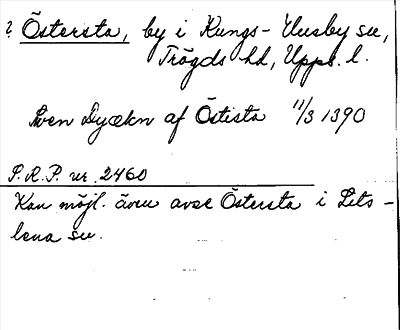 ? Östersta, by i Kungs-Husby sn,
Trögds hd, Uppl. l.
Sven Dyækn af Östista 11/3 1390
S.R.P. nr 2460
Kan möjl. även avse Östersta i Lits-
lena sn.